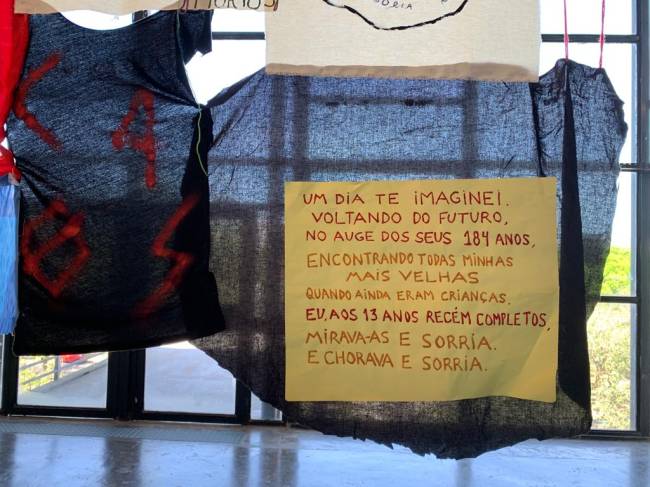 ÓRIA
UM DIA TE IMAGINEI.
VOLTANDO DO FUTURO,
NO AUGE DOS SEUS 184 ANOS,
ENCONTRANDO TODAS MINHAS
MAIS VELHAS
QUANDO AINDA ERAM CRIANÇAS.
EU, AOS 13 ANOS RECÉM COMPLETOS,
MIRAVA-AS E SORRIA.
E CHORAVA E SORRIA.
K A
O S